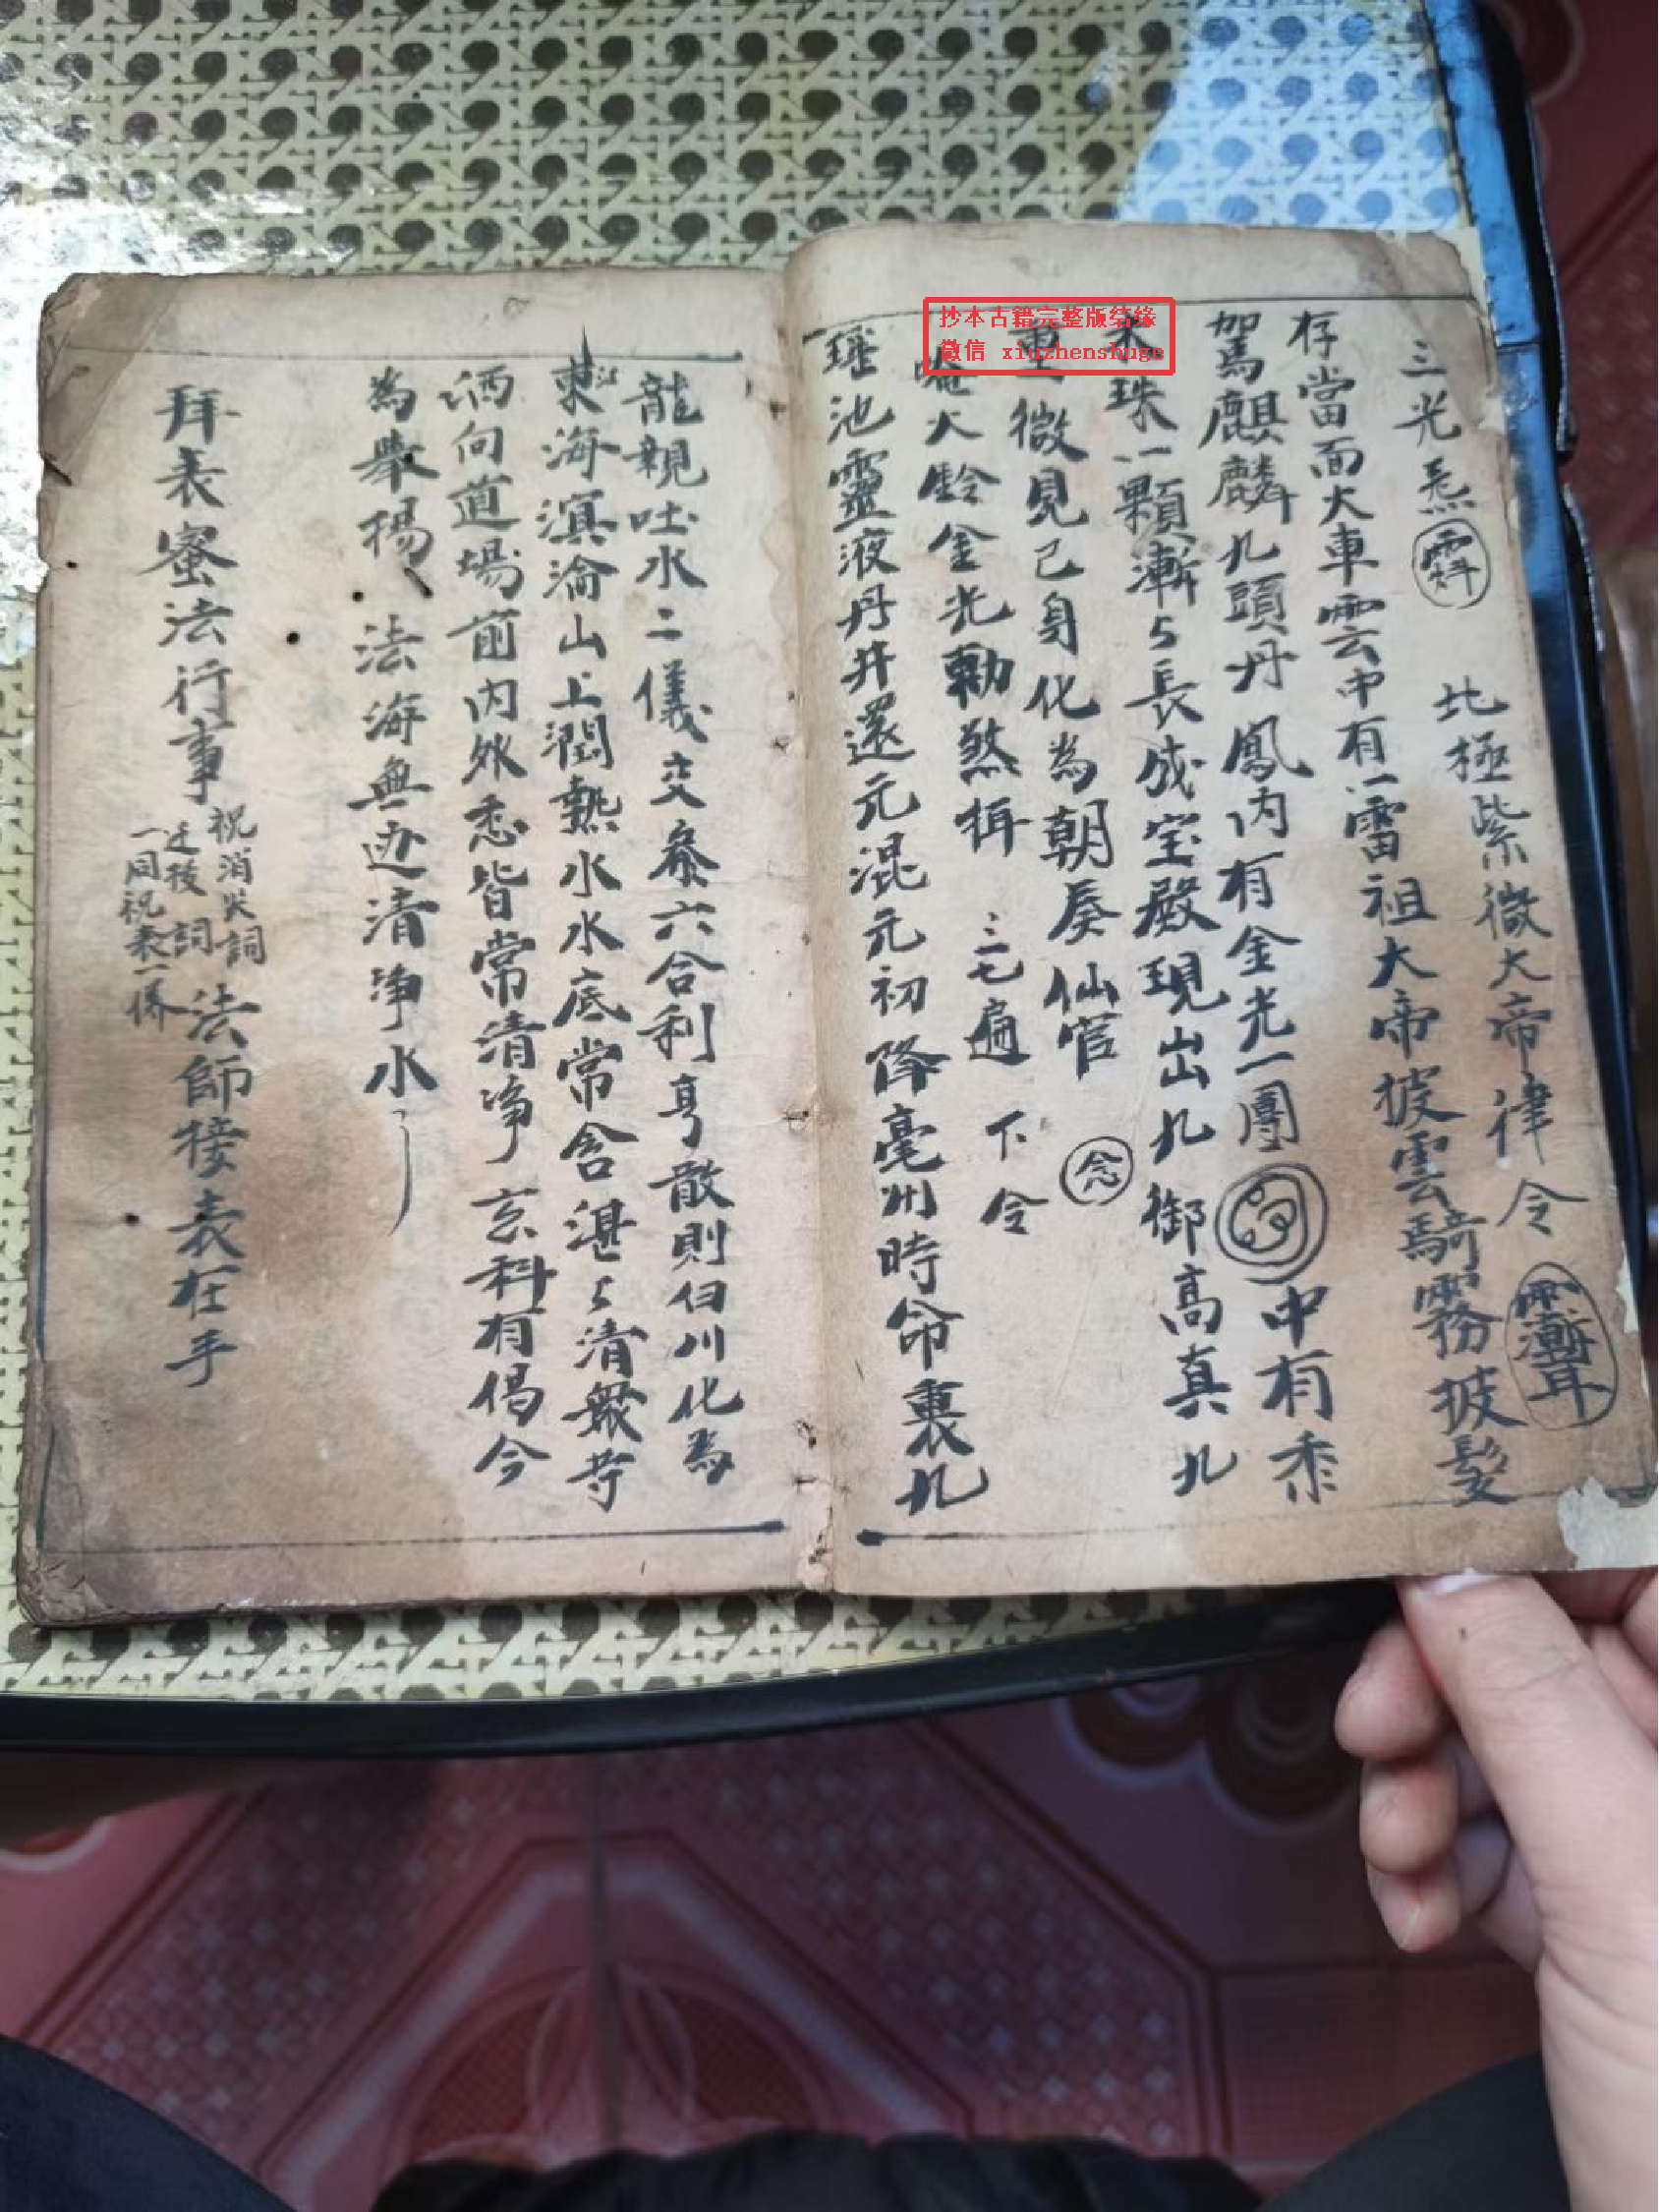 三光炁 霹 北極紫微大帝律令
存當面大車雲中有一雷祖大帝披雲騎霧披髮
駕麒麟九頭丹鳳內有金光一團 中有黍
米珠一顆漸々長成宝殿現出九御高真九
重微見己身化為朝奏仙官 念
唵大鈴金光勅煞揖 三七遍 下令
瑶池靈液丹井還元混元初降毫州時命裹九
龍親吐水二儀交泰六合利亨散則曰川化為
東海溟淪山上潤熱水水底常含湛々清嚴苛
洒向道場前內外悉皆常清净玄科有偈今
為舉揚 法海無边清净水
拜表蜜法行事 祝消灾詞 法師接表在手
一同祝表一俻
抄本古籍完整版结缘
微信 xiuzhenshuge